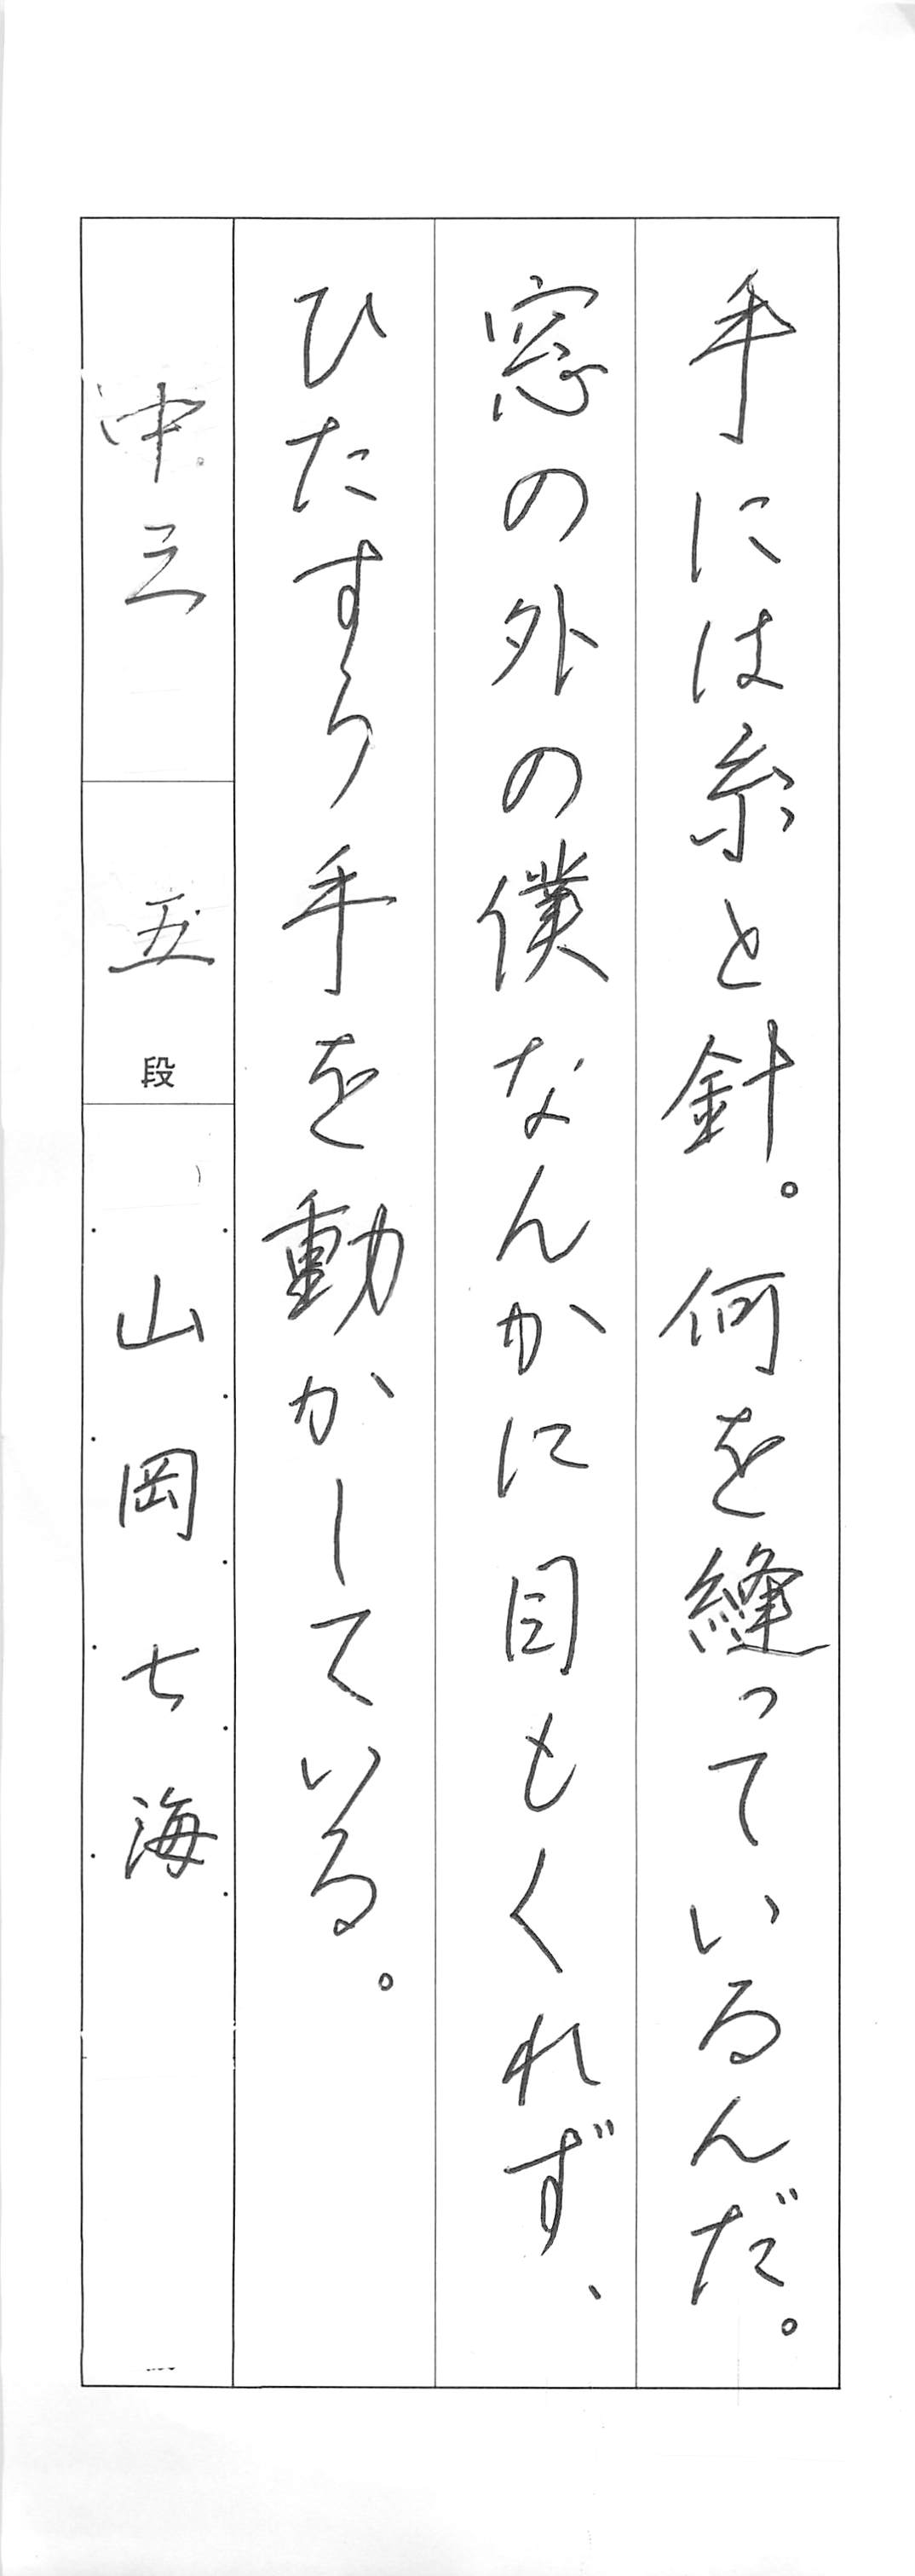 手には糸と針。何を縫っているんだ。
窓の外の僕なんかに目もくれず、
ひたすら手を動かしている。
中三 五段 山岡七海